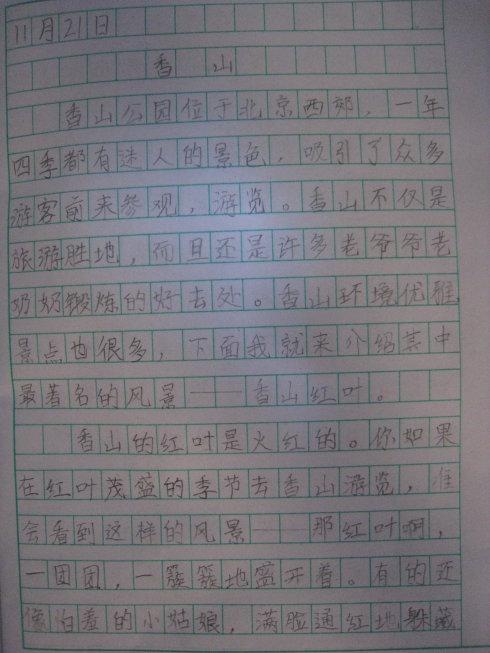 11月21日
香山
香山公园位于北京西郊，一年
四季都有迷人的景色，吸引了众多
游客前来参观，游览。香山不仅是
旅游胜地，而且还是许多老爷爷老
奶奶锻炼的好去处。香山环境优雅
景点也很多，下面我就来介绍其中
最著名的风景——香山红叶。
香山的红叶是火红的。你如果
在红叶茂盛的季节去香山游览，准
会看到这样的风景——那红叶啊，
一团团，一簇簇地盛开着。有的还
像怕羞的小姑娘，满脸通红地躲藏